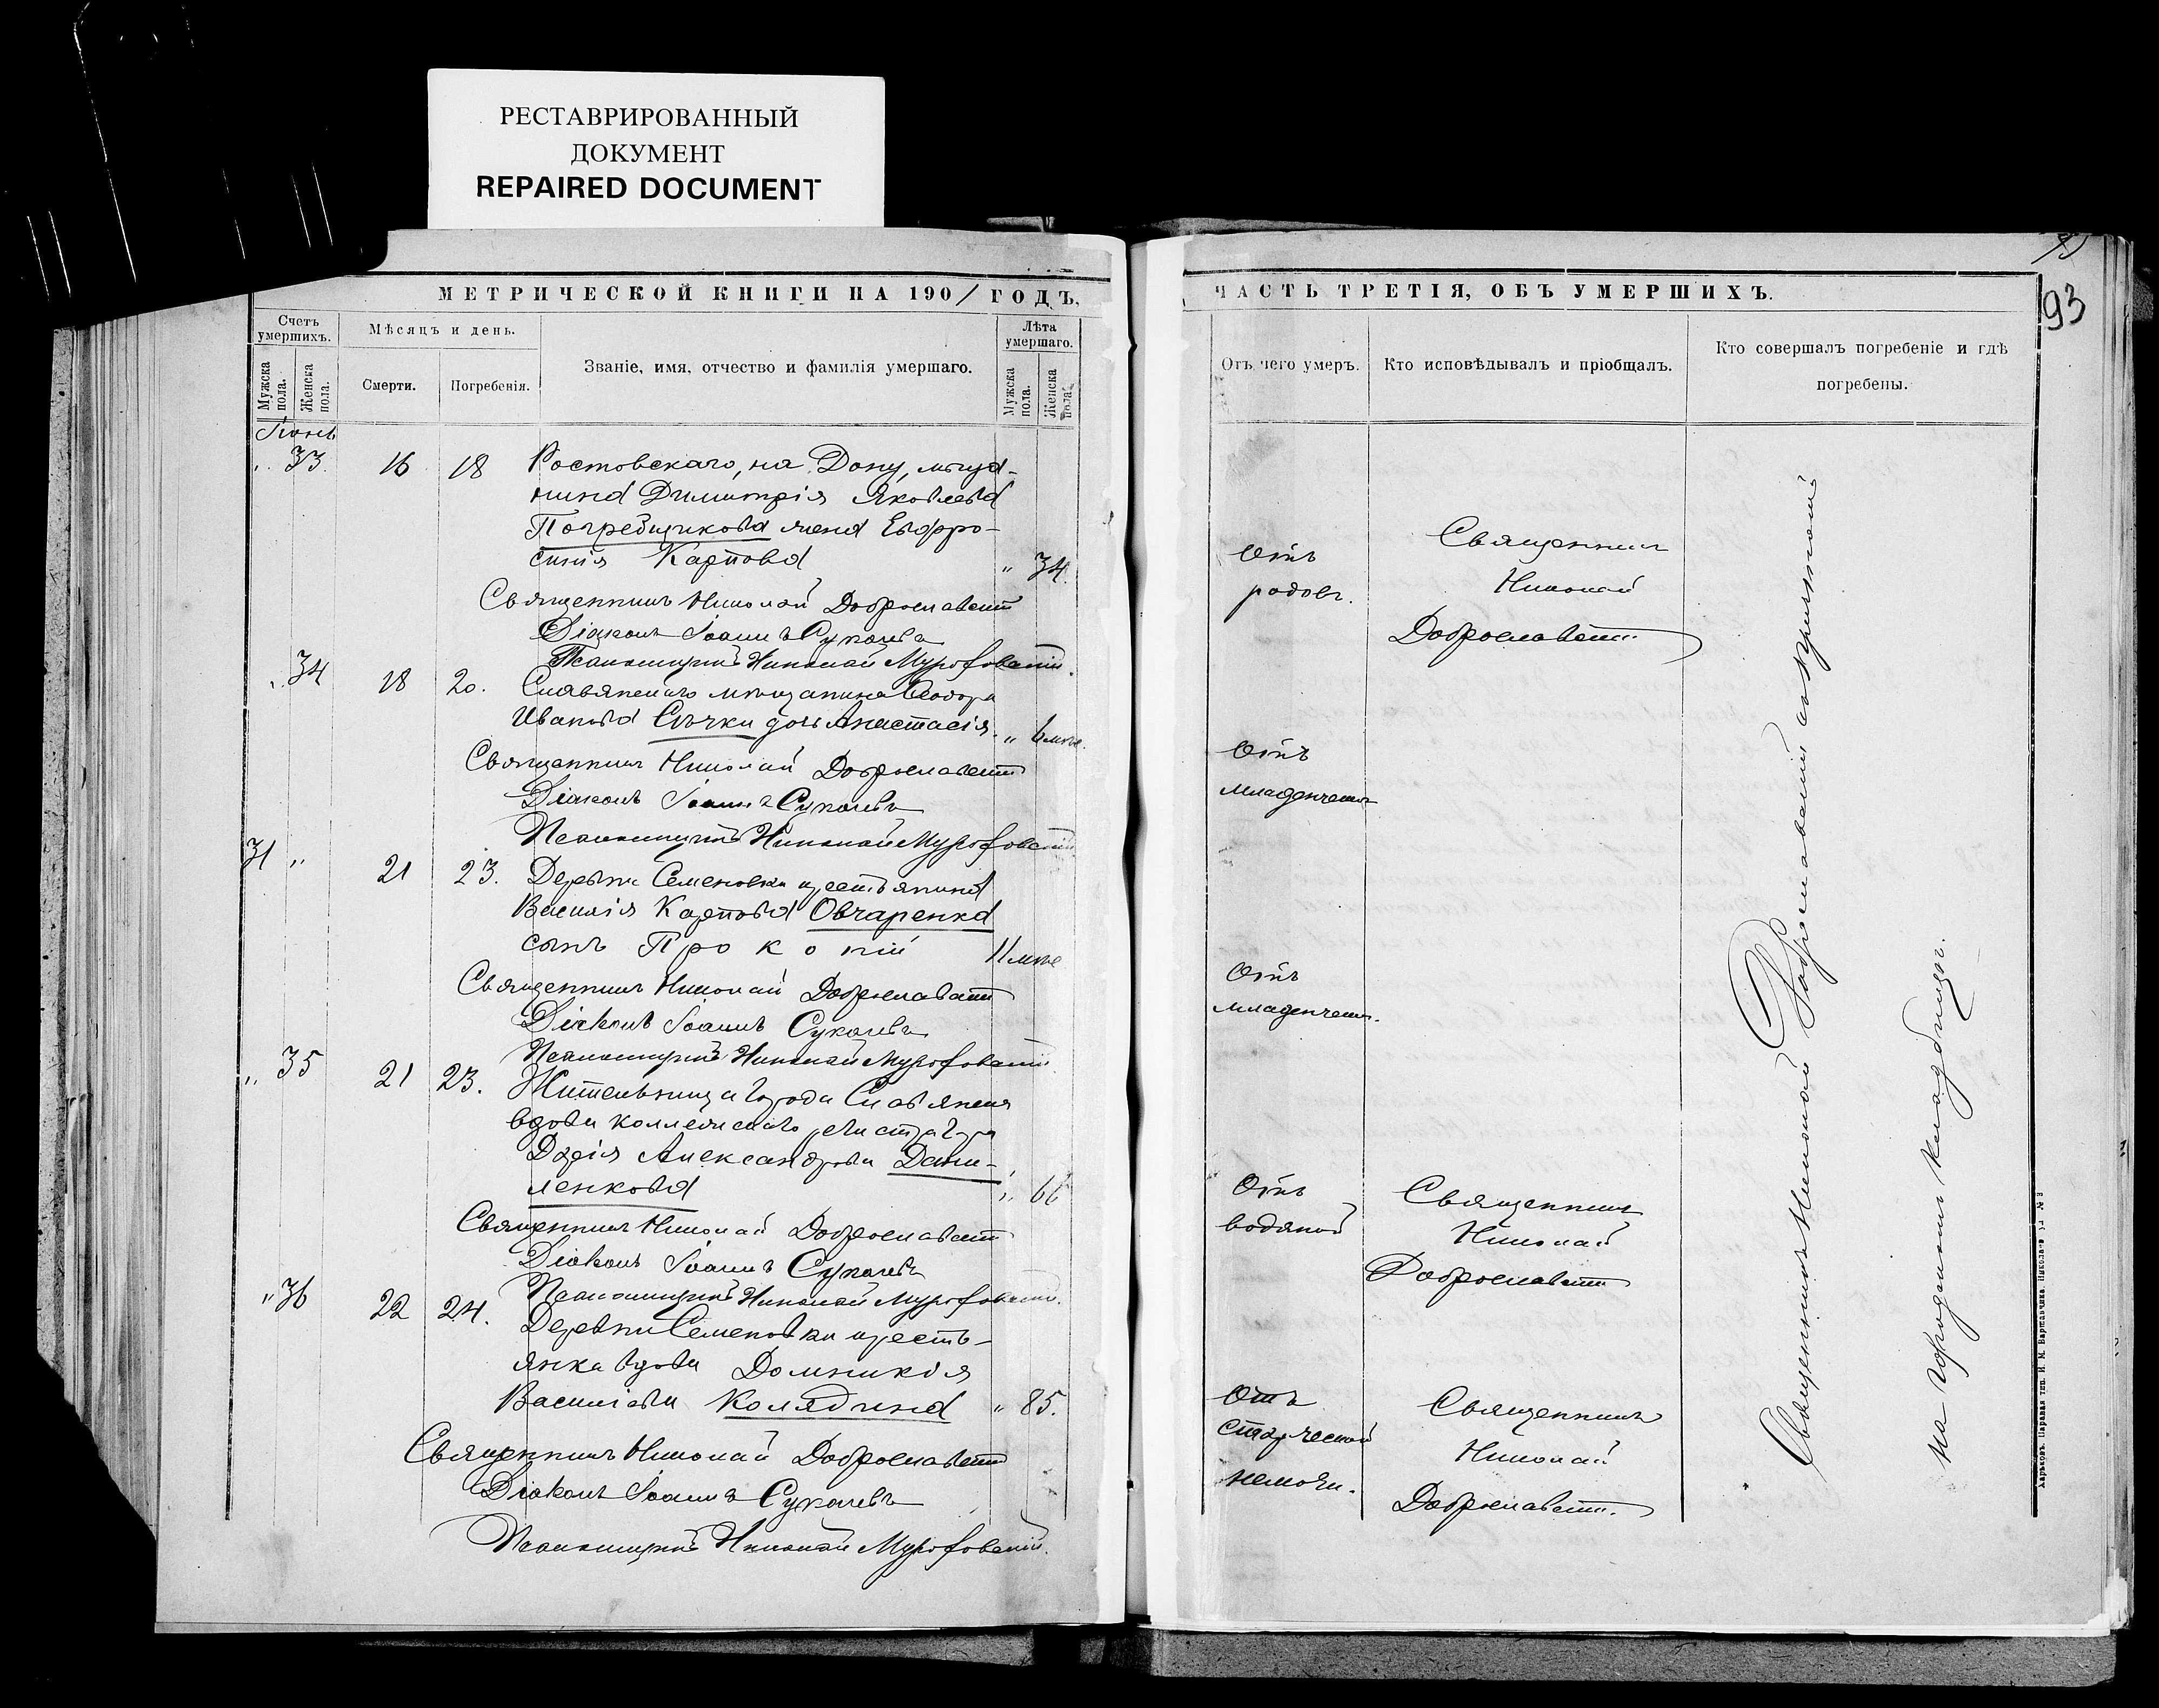 РЕСТАВРИРОВАННЫЙ
ДОКУМЕНТ
REPAIRED DOCUMENT
МЕТРИЧЕСКОЙ КНИГИ НА 1901 ГОДЪ,
Счетъ умершихъ.
Мужска пола.
Женска пола.
Мѣсяцъ и день.
Смерти.
Погребенія.
Званіе, имя, отчество и фамилія умершаго.
Лѣта умершаго.
Мужска пола.
Женска пола.
Іюнь
„ 33. 16 18 Ростовскаго, на Дону, мѣща-
нина Димитрія Яковлева
Погребщикова жена Евфро-
синія Карпова „ 34.
Священникъ Николай Доброславскій
Діаконъ Іоаннъ Сукачевъ
Псаломщикъ Николай
„ 34 18 20. Славянскаго мѣщанина Ѳеодора
Иванова Сѣчки дочь Анастасія. „ 6 мѣс.
Священникъ Николай Доброславскій
Діаконъ Іоаннъ Сукачевъ
Псаломщикъ Николай
31 „ 21 23. Деревни Семеновки крестьянина
Василія Карпова Овчаренка
сынъ Прокопій 11 мѣс
Священникъ Николай Доброславскій
Діаконъ Іоаннъ Сукачевъ
Псаломщикъ Николай
„ 35 21 23. Жительница города Славянска
вдова коллежскаго регистратора
Дарія Александрова Дани-
ленкова „ 66
Священникъ Николай Доброславскій
Діаконъ Іоаннъ Сукачевъ
Псаломщикъ Николай
„ 36 22 24. Деревни Семеновки кресть-
янка вдова Домникія
Василіева Колядина „ 85.
Священникъ Николай Доброславскій
Діаконъ Іоаннъ Сукачевъ
Псаломщикъ Николай
93
ЧАСТЬ ТРЕТІЯ, ОБЪ УМЕРШИХЪ.
Отъ чего умеръ.
Кто исповѣдывалъ и пріобщалъ.
Кто совершалъ погребеніе и гдѣ
погребены.
Отъ
родовъ.
Священникъ
Николай
Доброславскій
Отъ
младенческ.
Отъ
младенческ.
Отъ
водяной
Священникъ
Николай
Доброславскій
Отъ
старческой
немощи.
Священникъ
Николай
Доброславскій.
Священникъ Николай Доброславскій
на городскомъ кладбищѣ.
Харьковъ. Паровая тип. И. М. Варшавчика